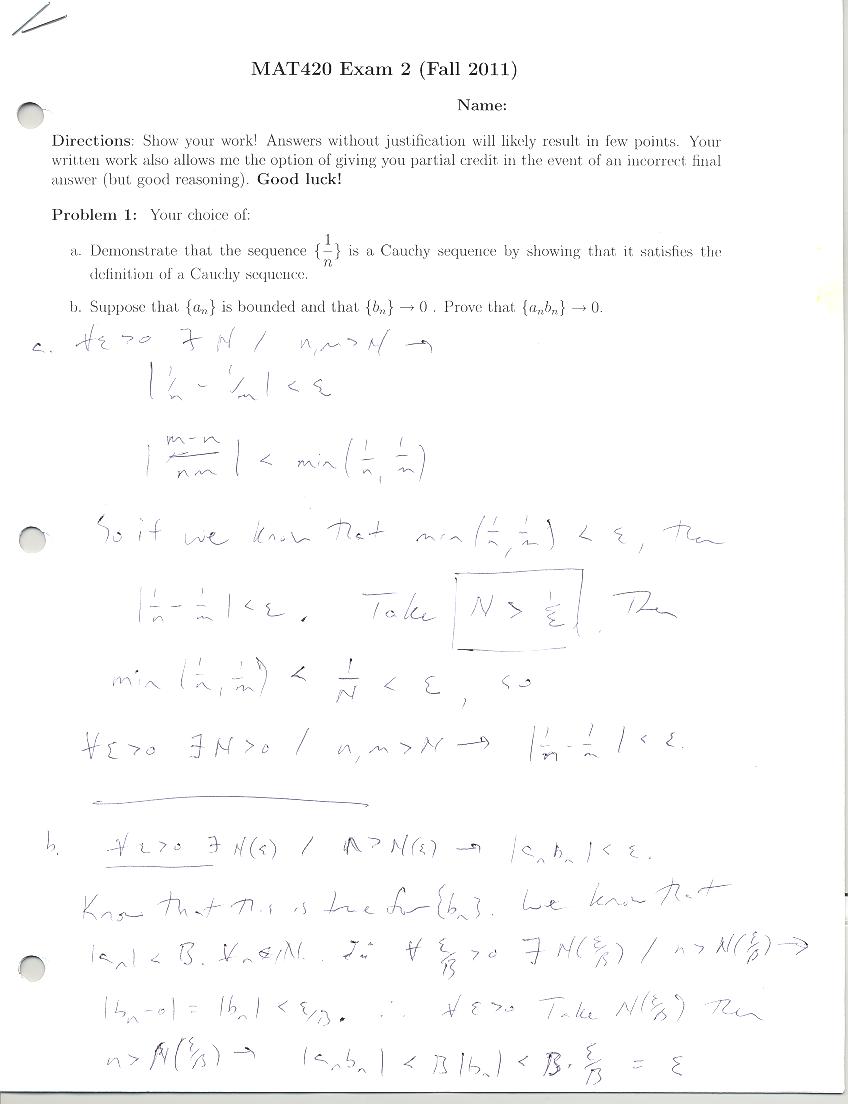 MAT420 Exam 2 (Fall 2011)
Name:
Directions: Show your work! Answers without justification will likely result in few points. Your
written work also allows me the option of giving you partial credit in the event of an incorrect final
answer (but good reasoning). Good luck!
Problem 1: Your choice of:
a. Demonstrate that the sequence {1/n} is a Cauchy sequence by showing that it satisfies the
definition of a Cauchy sequence.
b. Suppose that {aₙ} is bounded and that {bₙ} → 0 . Prove that {aₙbₙ} → 0.
a. ∀ε>0 ∃ N / n,m>N →
|1/n - 1/m| < ε
|(m-n)/nm| < min(1/n, 1/m)
So if we know that min(1/n, 1/m) < ε, then
|1/n - 1/m| < ε. Take N > 1/ε. Then
min(1/n, 1/m) < 1/N < ε, so
∀ε>0 ∃N>0 / n,m>N → |1/n - 1/m| < ε.
b. ∀ε>0 ∃ N(ε) / n>N(ε) → |aₙbₙ| < ε.
Know that this is true for {bₙ}. We know that
|aₙ| < B. ∀n∈ℕ. ∀ ε/B >0 ∃ N(ε/B) / n>N(ε/B) →
|bₙ-0| = |bₙ| < ε/B. ∴ ∀ε>0 Take N(ε/B) Then
n>N(ε/B) → |aₙbₙ| < B|bₙ| < B·ε/B = ε